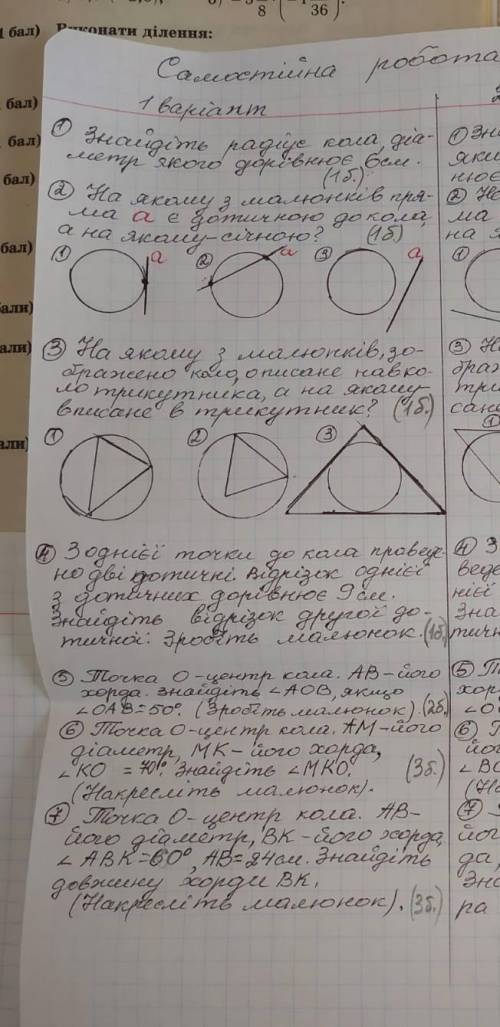 8
36
1 бал) Виконати ділення:
Самостійна робота
бал)
1 варіант
① Знайдіть радіус кола, діа-
метр якого дорівнює 6см.
(1б.)
② На якому з малюнків пря-
ма а є дотичною до кола,
а на якому-січною? (1б.)
① а ② а ③ а
③ На якому з малюнків, зо-
бражено коло, описане навко-
ло трикутника, а на якому-
вписане в трикутник? (1б.)
① ② ③
④ З однієї точки до кола проведе-
но дві дотичні. Відрізок однієї
з дотичних дорівнює 9см.
Знайдіть відрізок другої до-
тичної. Зробіть малюнок. (1б.)
⑤ Точка О-центр кола. АВ-його
хорда. Знайдіть ∠АОВ, якщо
∠ОАВ=50°. (Зробіть малюнок) (2б.)
⑥ Точка О-центр кола. АМ-його
діаметр, МК-його хорда,
∠КО =70°. Знайдіть ∠МКО. (3б.)
(Накресліть малюнок).
⑦ Точка О-центр кола. АВ-
його діаметр, ВК-його хорда,
∠АВК=60°, АВ=24см. Знайдіть
довжину хорди ВК.
(Накресліть малюнок). (3б.)
бал)
бал)
бал)
бали)
бали)
бали)
① Зна
яки
нює
② На
ма
на я
①
③ Н
браж
три
сане
①
④ З
веде
нієї
Зна
тичн
⑤ Т
хор
∠О
⑥
йог
∠ВС
(На
⑦
йог
да,
Зна
ра